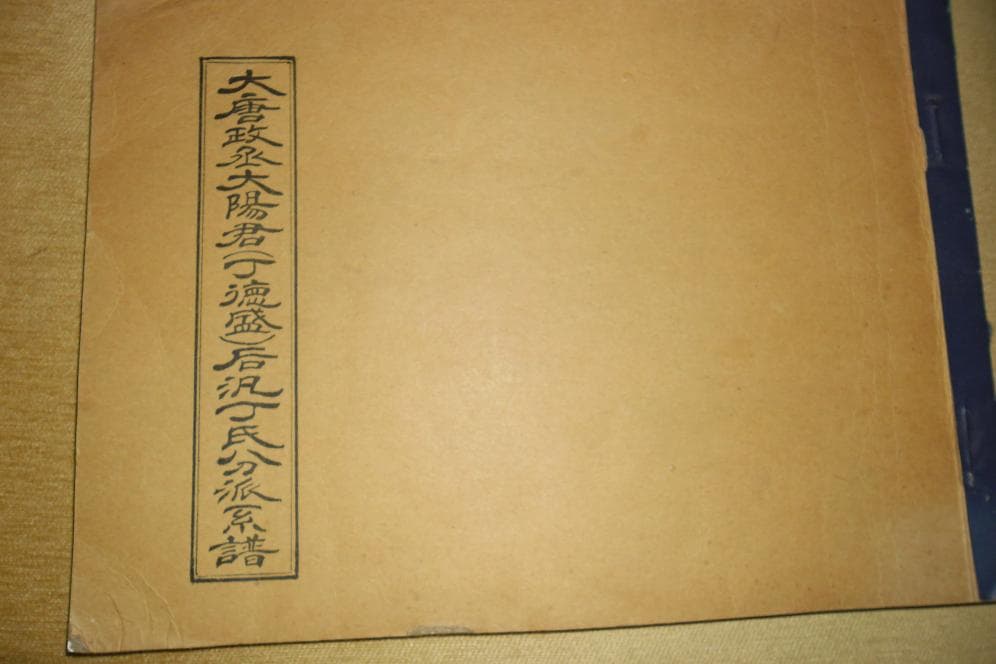 大唐政丞大陽君(丁德盛)后汎丁氏分派系譜